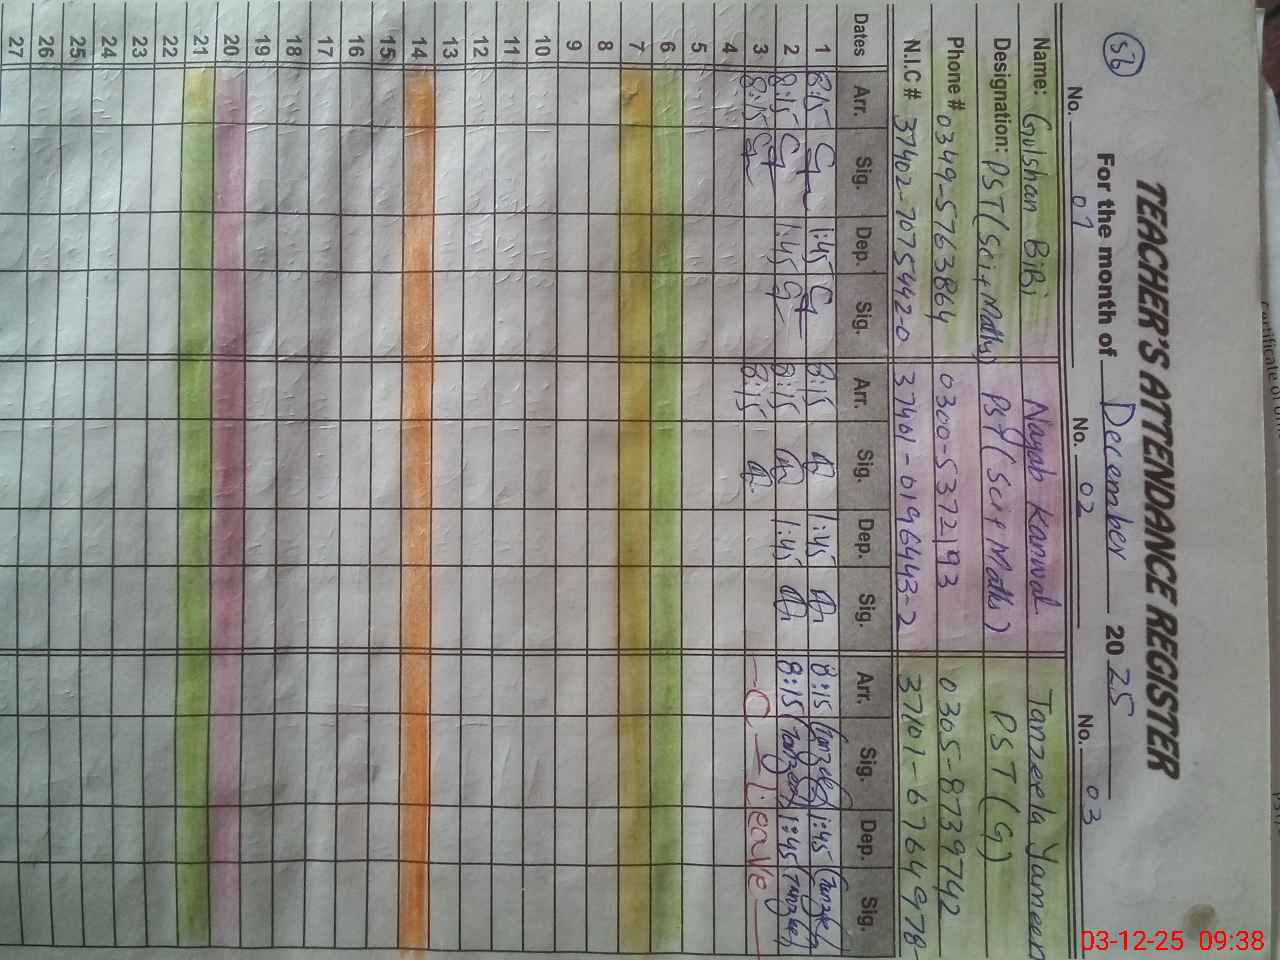 56
TEACHER'S ATTENDANCE REGISTER
For the month of December 2025
No. 01 No. 02 No. 03
Name: Gulshan BiBi Nayab Kanwal Tanzeela Yameen
Designation: PST (Sci+Maths) PST (Sci+Maths) PST (G)
Phone # 0349-5763864 0300-5372193 0305-8739742
N.I.C # 37402-7075442-0 37401-0196443-2 37101-6764978-
Dates Arr. Sig. Dep. Sig. Arr. Sig. Dep. Sig. Arr. Sig. Dep. Sig.
1 8:15 1:45 8:15 1:45 8:15 Tanzeela 1:45 Tanzeela
2 8:15 1:45 8:15 1:45 8:15 Tanzeela 1:45 Tanzeela
3 8:15 8:15 - C - Leave
4
5
6
7
8
9
10
11
12
13
14
15
16
17
18
19
20
21
22
23
24
25
26
27
03-12-25 09:38